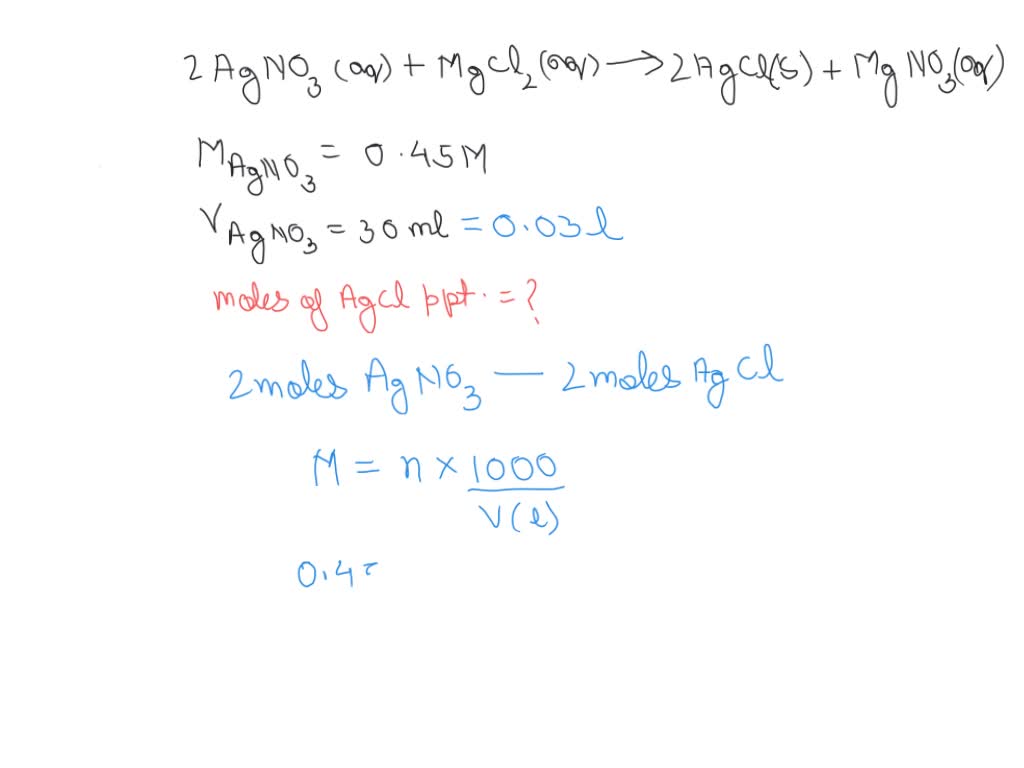 2AgNO₃ (aq) + MgCl₂ (aq) → 2AgCl(s) + MgNO₃(aq)
M AgNO₃ = 0.45M
V AgNO₃ = 30 ml = 0.03 l
moles of AgCl ppt. = ?
2 moles AgNO₃ — 2 moles AgCl
M = n × 1000
V(l)
0.4